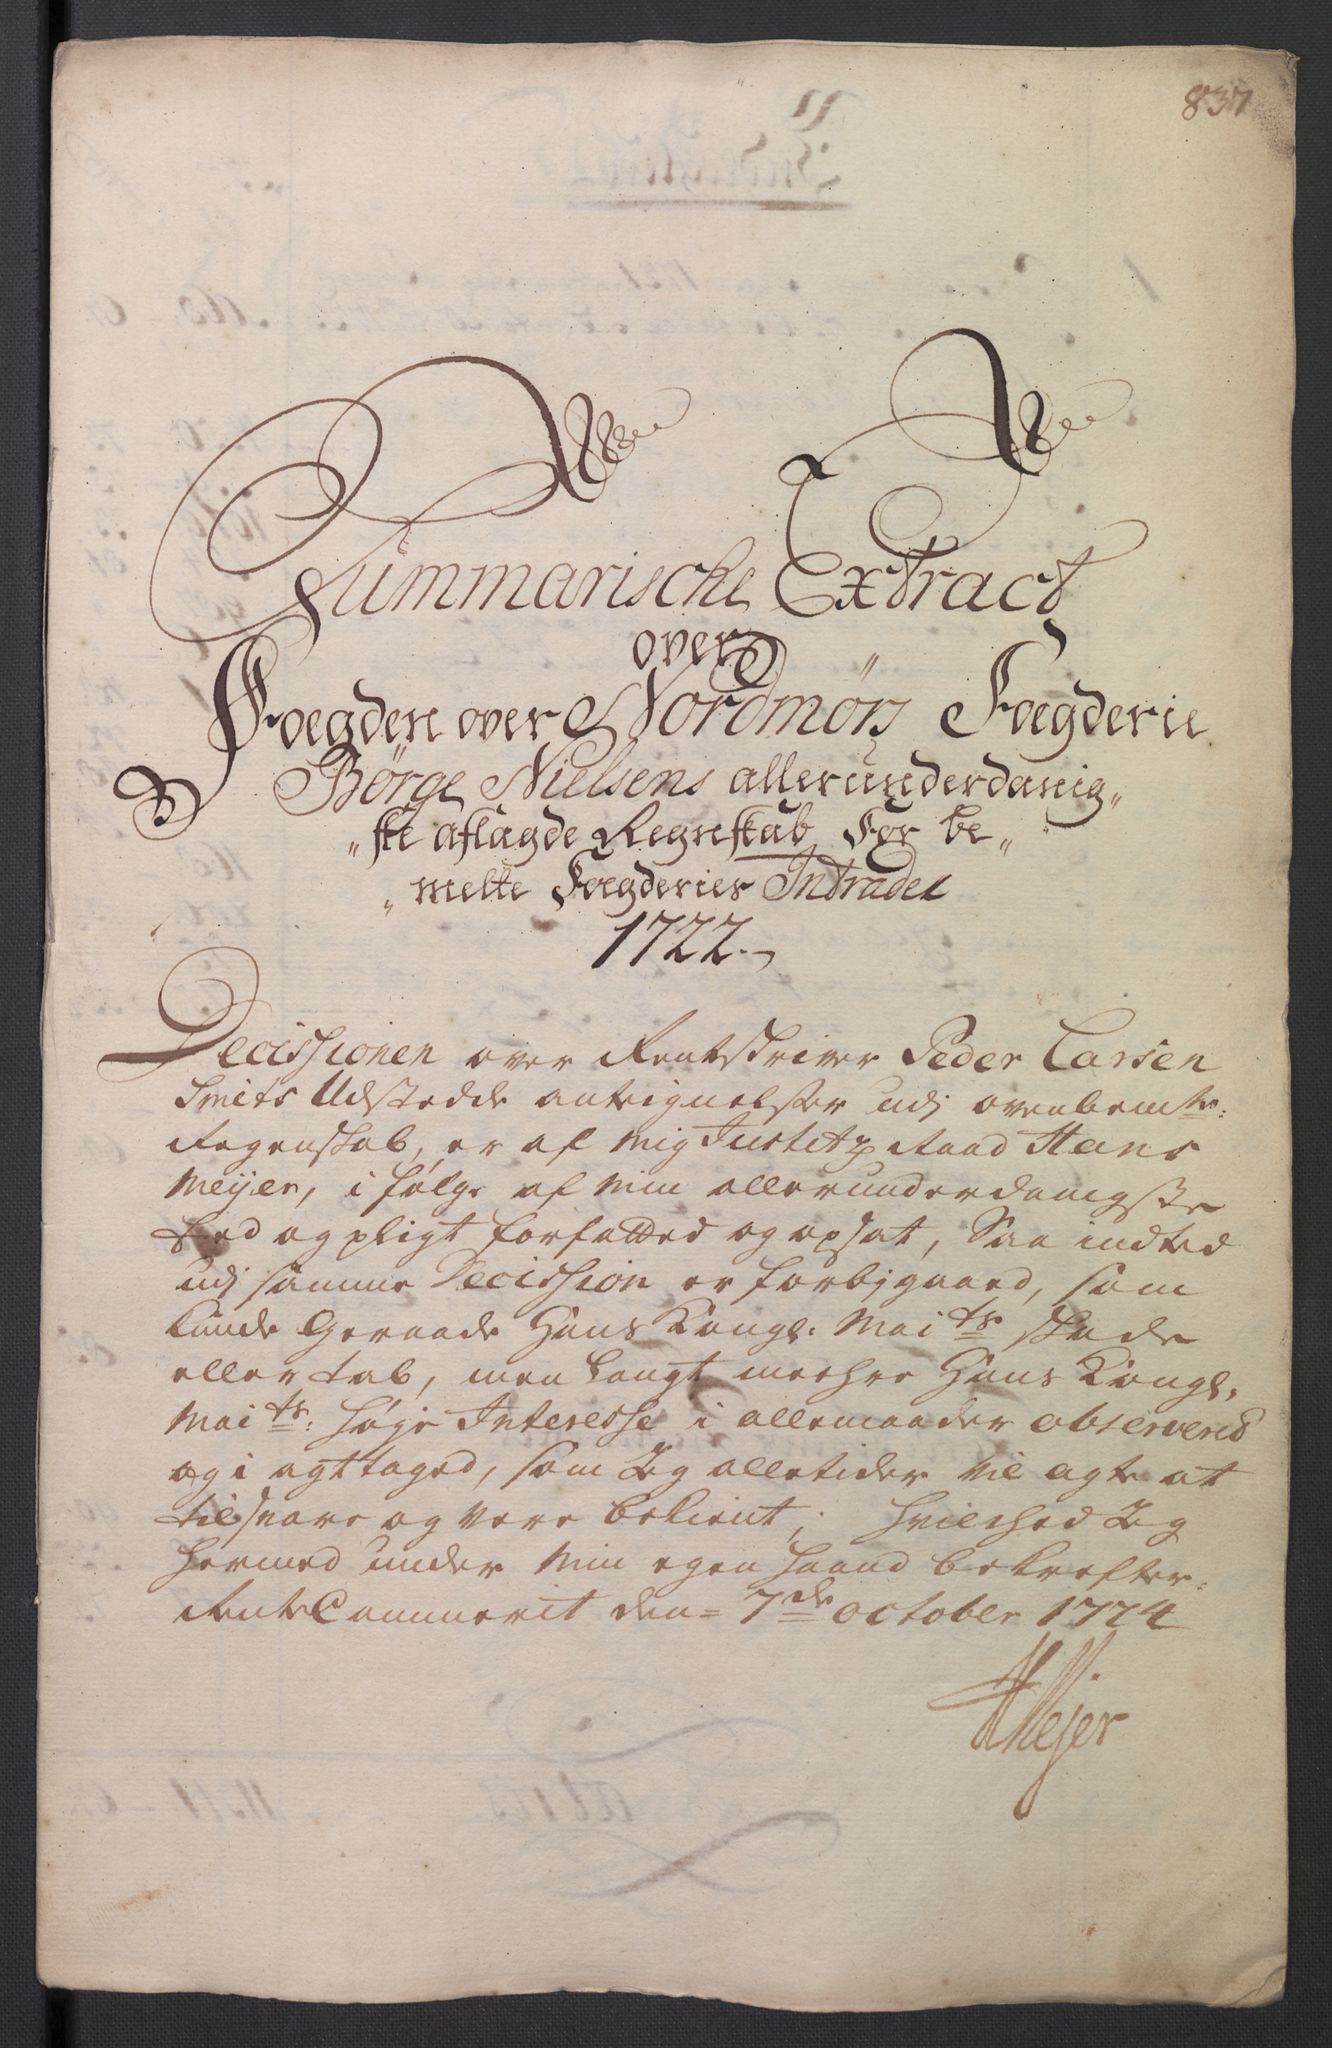 837
Summarische Extract
over
Foegden over Nordmørs Foegderie
Børge Nielsens allerunderdanig„
„ste aflagde Regnskab For be„
„melte Foegderies Intrader
1722.
Decissionen over Rentskriver Peder Larsen
Smits Udstedde antegnelsser udj ovenbemte:
Regenskab, er af Mig Justitz Raad Hans
Meyer, i følge af Min allerunderdanigste
Eed og pligt forfatted og opsat, Saa indted
udj samme Decission er forbjgaaed, som
kunde Geraade Hans Kongl: Maits skade
eller tab, men langt meehre Hans Kongl.
Maits: høje Interesse i allemaader observerid
og i agttaged, som Jeg alletider vil agte at
tilsvare og være bekient; hvilched Jeg
hermed under Min egen haand bekrefter.
RenteCammerit den= 7de October 1724
HMejer